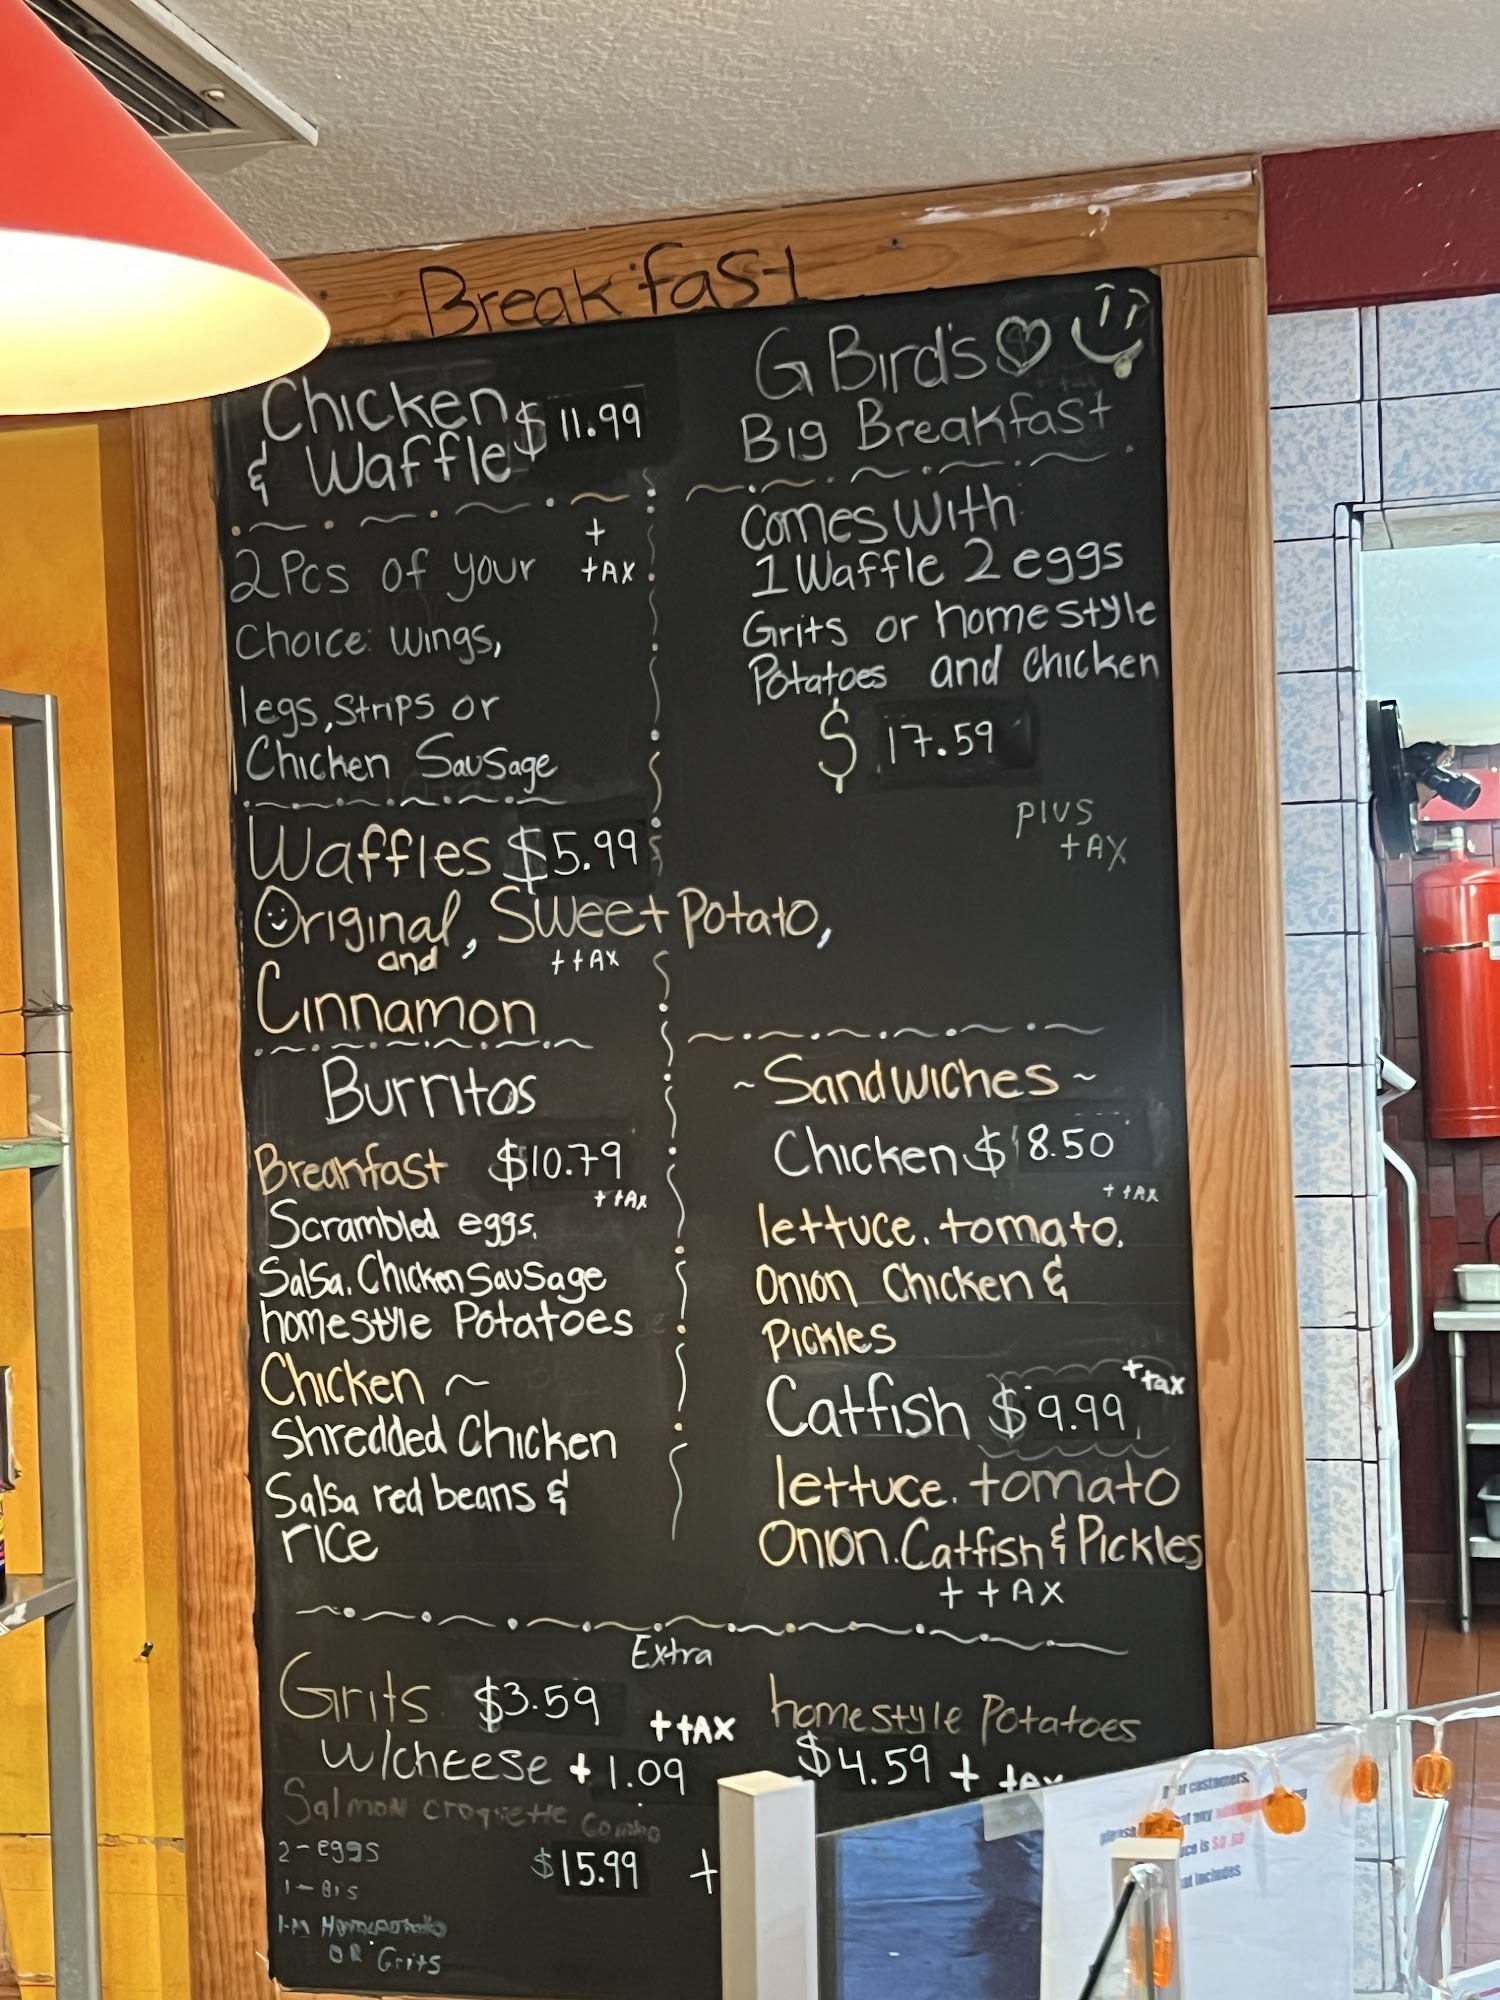 Breakfast
Chicken
& Waffle $11.99
+
tAX
2 Pcs of your
Choice: Wings,
legs, Strips or
Chicken Sausage
Waffles $5.99
Original, Sweet Potato,
and
+ tAX
Cinnamon
Burritos
Breakfast $10.79
+ tAx
Scrambled eggs.
Salsa. Chicken Sausage
homestyle Potatoes
Chicken ~
Shredded Chicken
Salsa red beans &
rice
G Bird's
Big Breakfast
Comes With
1 Waffle 2 eggs
Grits or homestyle
Potatoes and Chicken
$ 17.59
plus
tAX
~ Sandwiches ~
Chicken $ 8.50
+ tAx
lettuce. tomato.
Onion Chicken &
Pickles
Catfish $ 9.99
+ tax
lettuce. tomato
Onion. Catfish & Pickles
+ tAX
Extra
Grits $3.59
+ tAX
w/cheese + 1.09
homestyle Potatoes
$4.59 + tax
Salmon croquette Combo
2 - eggs
$15.99 +
1 - Bis
OR Grits
customers
is $0.50
includes